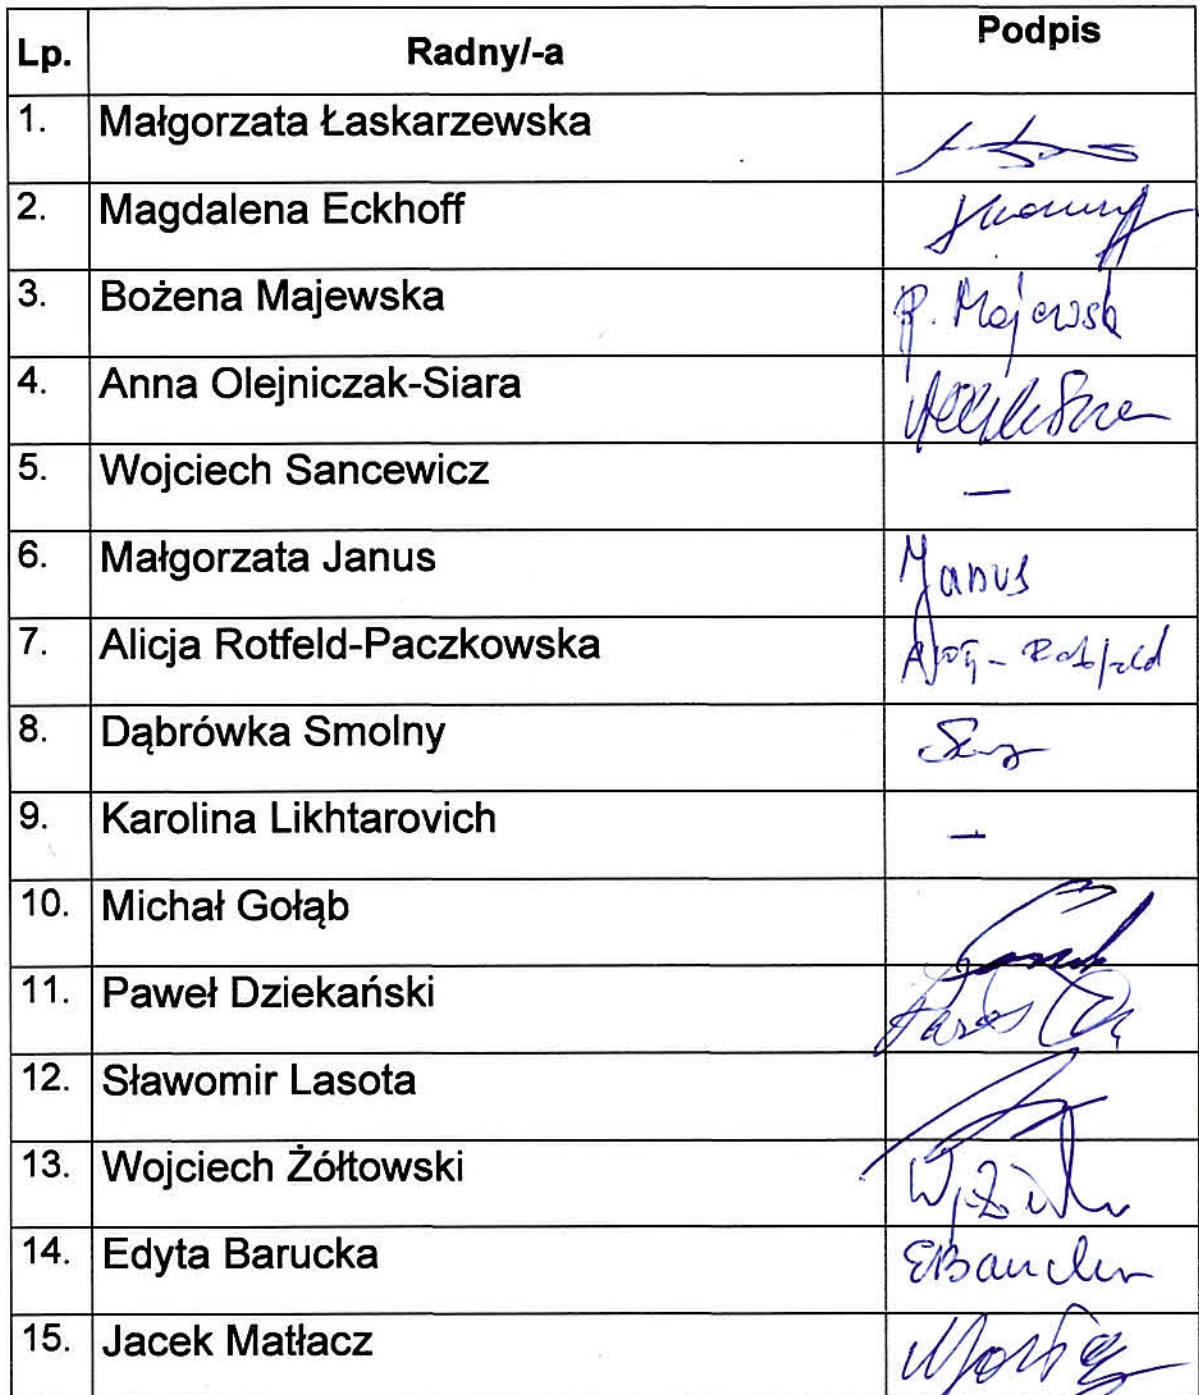 Lp. Radny/-a Podpis
1. Małgorzata Łaskarzewska
2. Magdalena Eckhoff
3. Bożena Majewska B. Majewska
4. Anna Olejniczak-Siara
5. Wojciech Sancewicz —
6. Małgorzata Janus MJanus
7. Alicja Rotfeld-Paczkowska
8. Dąbrówka Smolny
9. Karolina Likhtarovich —
10. Michał Gołąb
11. Paweł Dziekański
12. Sławomir Lasota
13. Wojciech Żółtowski
14. Edyta Barucka EBarucka
15. Jacek Matłacz